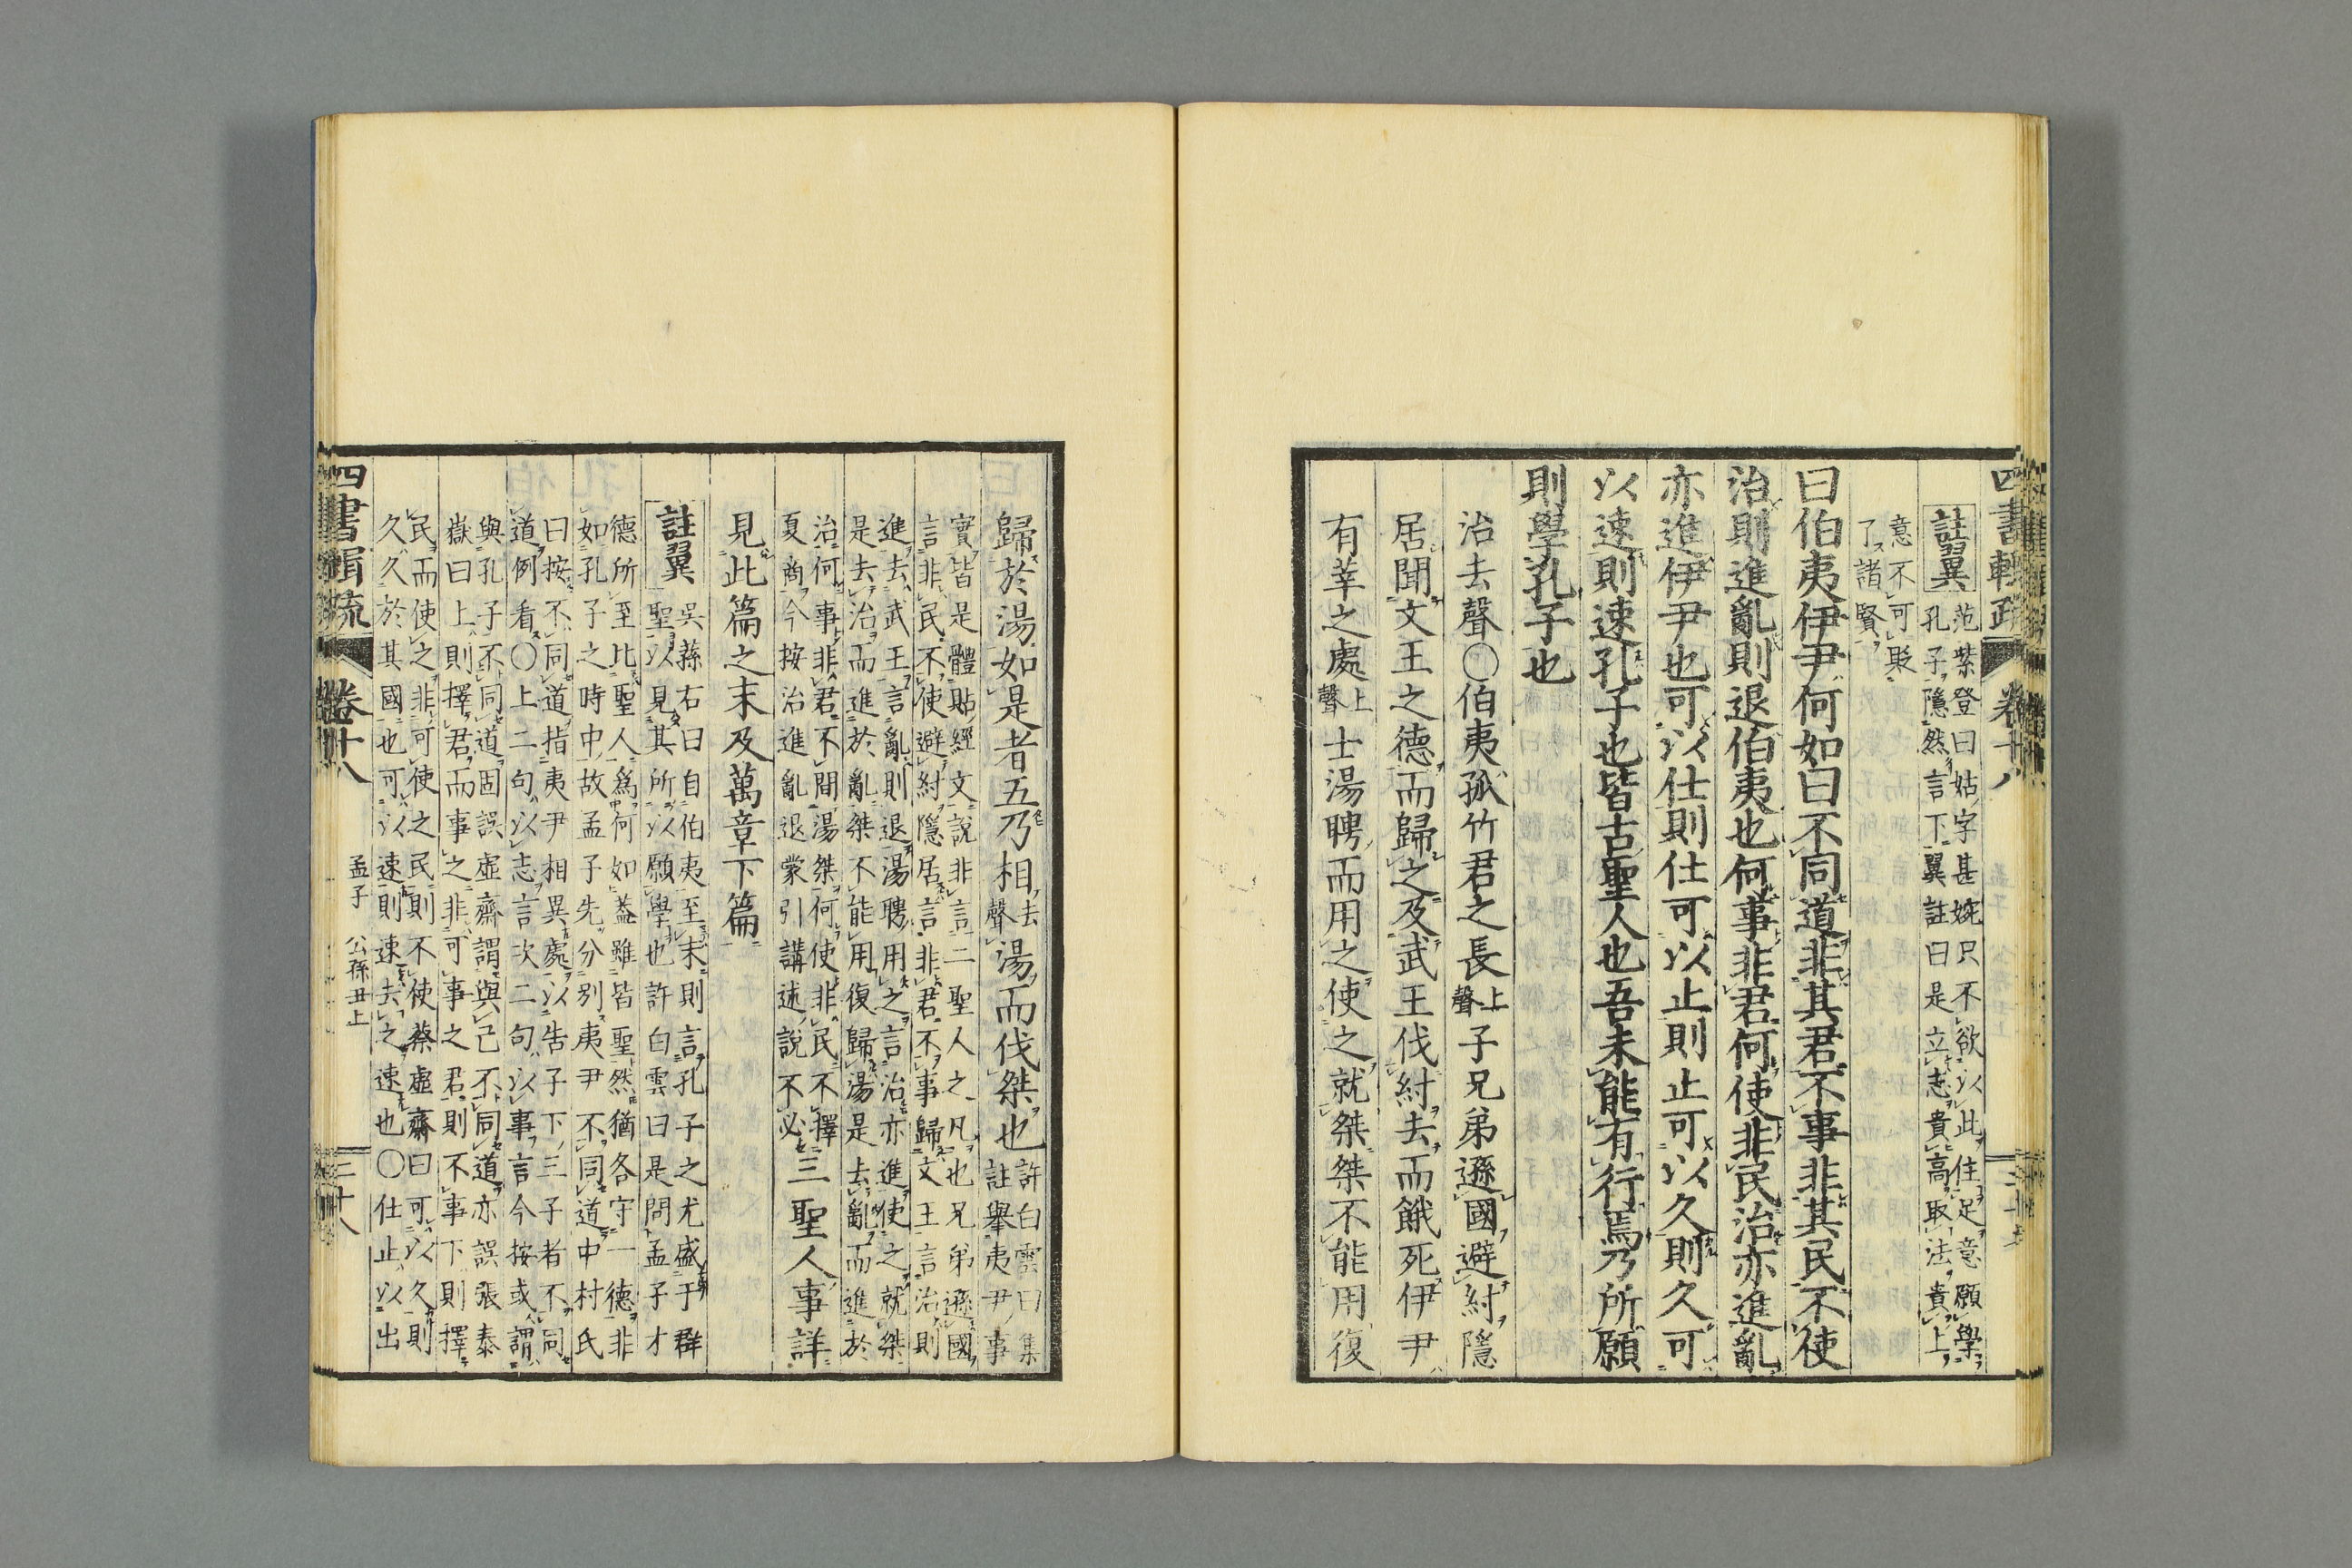 四書輯疏 卷十八
註翼 范紫登曰姑字甚婉只不欲以此住足意願學
孔子隱然言下翼註曰是立志貴高取法貴上
意不可貶
了諸賢
曰伯夷伊尹何如曰不同道非其君不事非其民不使
治則進亂則退伯夷也何事非君何使非民治亦進亂
亦進伊尹也可以仕則仕可以止則止可以久則久可
以速則速孔子也皆古聖人也吾未能有行焉乃所願
則學孔子也
治去聲〇伯夷孤竹君之長上聲子兄弟遜國避紂隱
居聞文王之德而歸之及武王伐紂去而餓死伊尹
有莘之處上聲士湯聘而用之使之就桀桀不能用復
歸於湯如是者五乃相去聲湯而伐桀也許白雲曰集註舉夷尹事
實皆是體貼經文說非言二聖人之凡也兄弟遜國
言非民不使避紂隱居言非君不事歸文王言治則
進去武王言亂則退湯聘用之言治亦進使之就桀
是去治而進於亂桀不能用復歸湯是去亂而進於
治何事非君不間湯桀何使非民不擇
夏商今按治進亂退蒙引講述說不必三聖人事詳
見此篇之末及萬章下篇
註翼 吳蓀右曰自伯夷至末則言孔子之尤盛于群
聖以見其所以願學也許白雲曰是問孟子才
德所至比聖人爲何如蓋雖皆聖然猶各守一德非
如孔子之時中故孟子先分別夷尹不同道中村氏
曰按不同道指夷尹相異處以告子下三子者不同
道例看〇上二句以志言次二句以事言今按或謂
與孔子不同道固誤虛齋謂與己不同道亦誤張泰
嶽曰上則擇君而事之非可事之君則不事下則擇
民而使之非可使之民則不使蔡虛齋曰可以久則
久久於其國也可以速則速去之速也〇仕止以出
四書輯疏 卷十八 孟子 公孫丑上 二十八